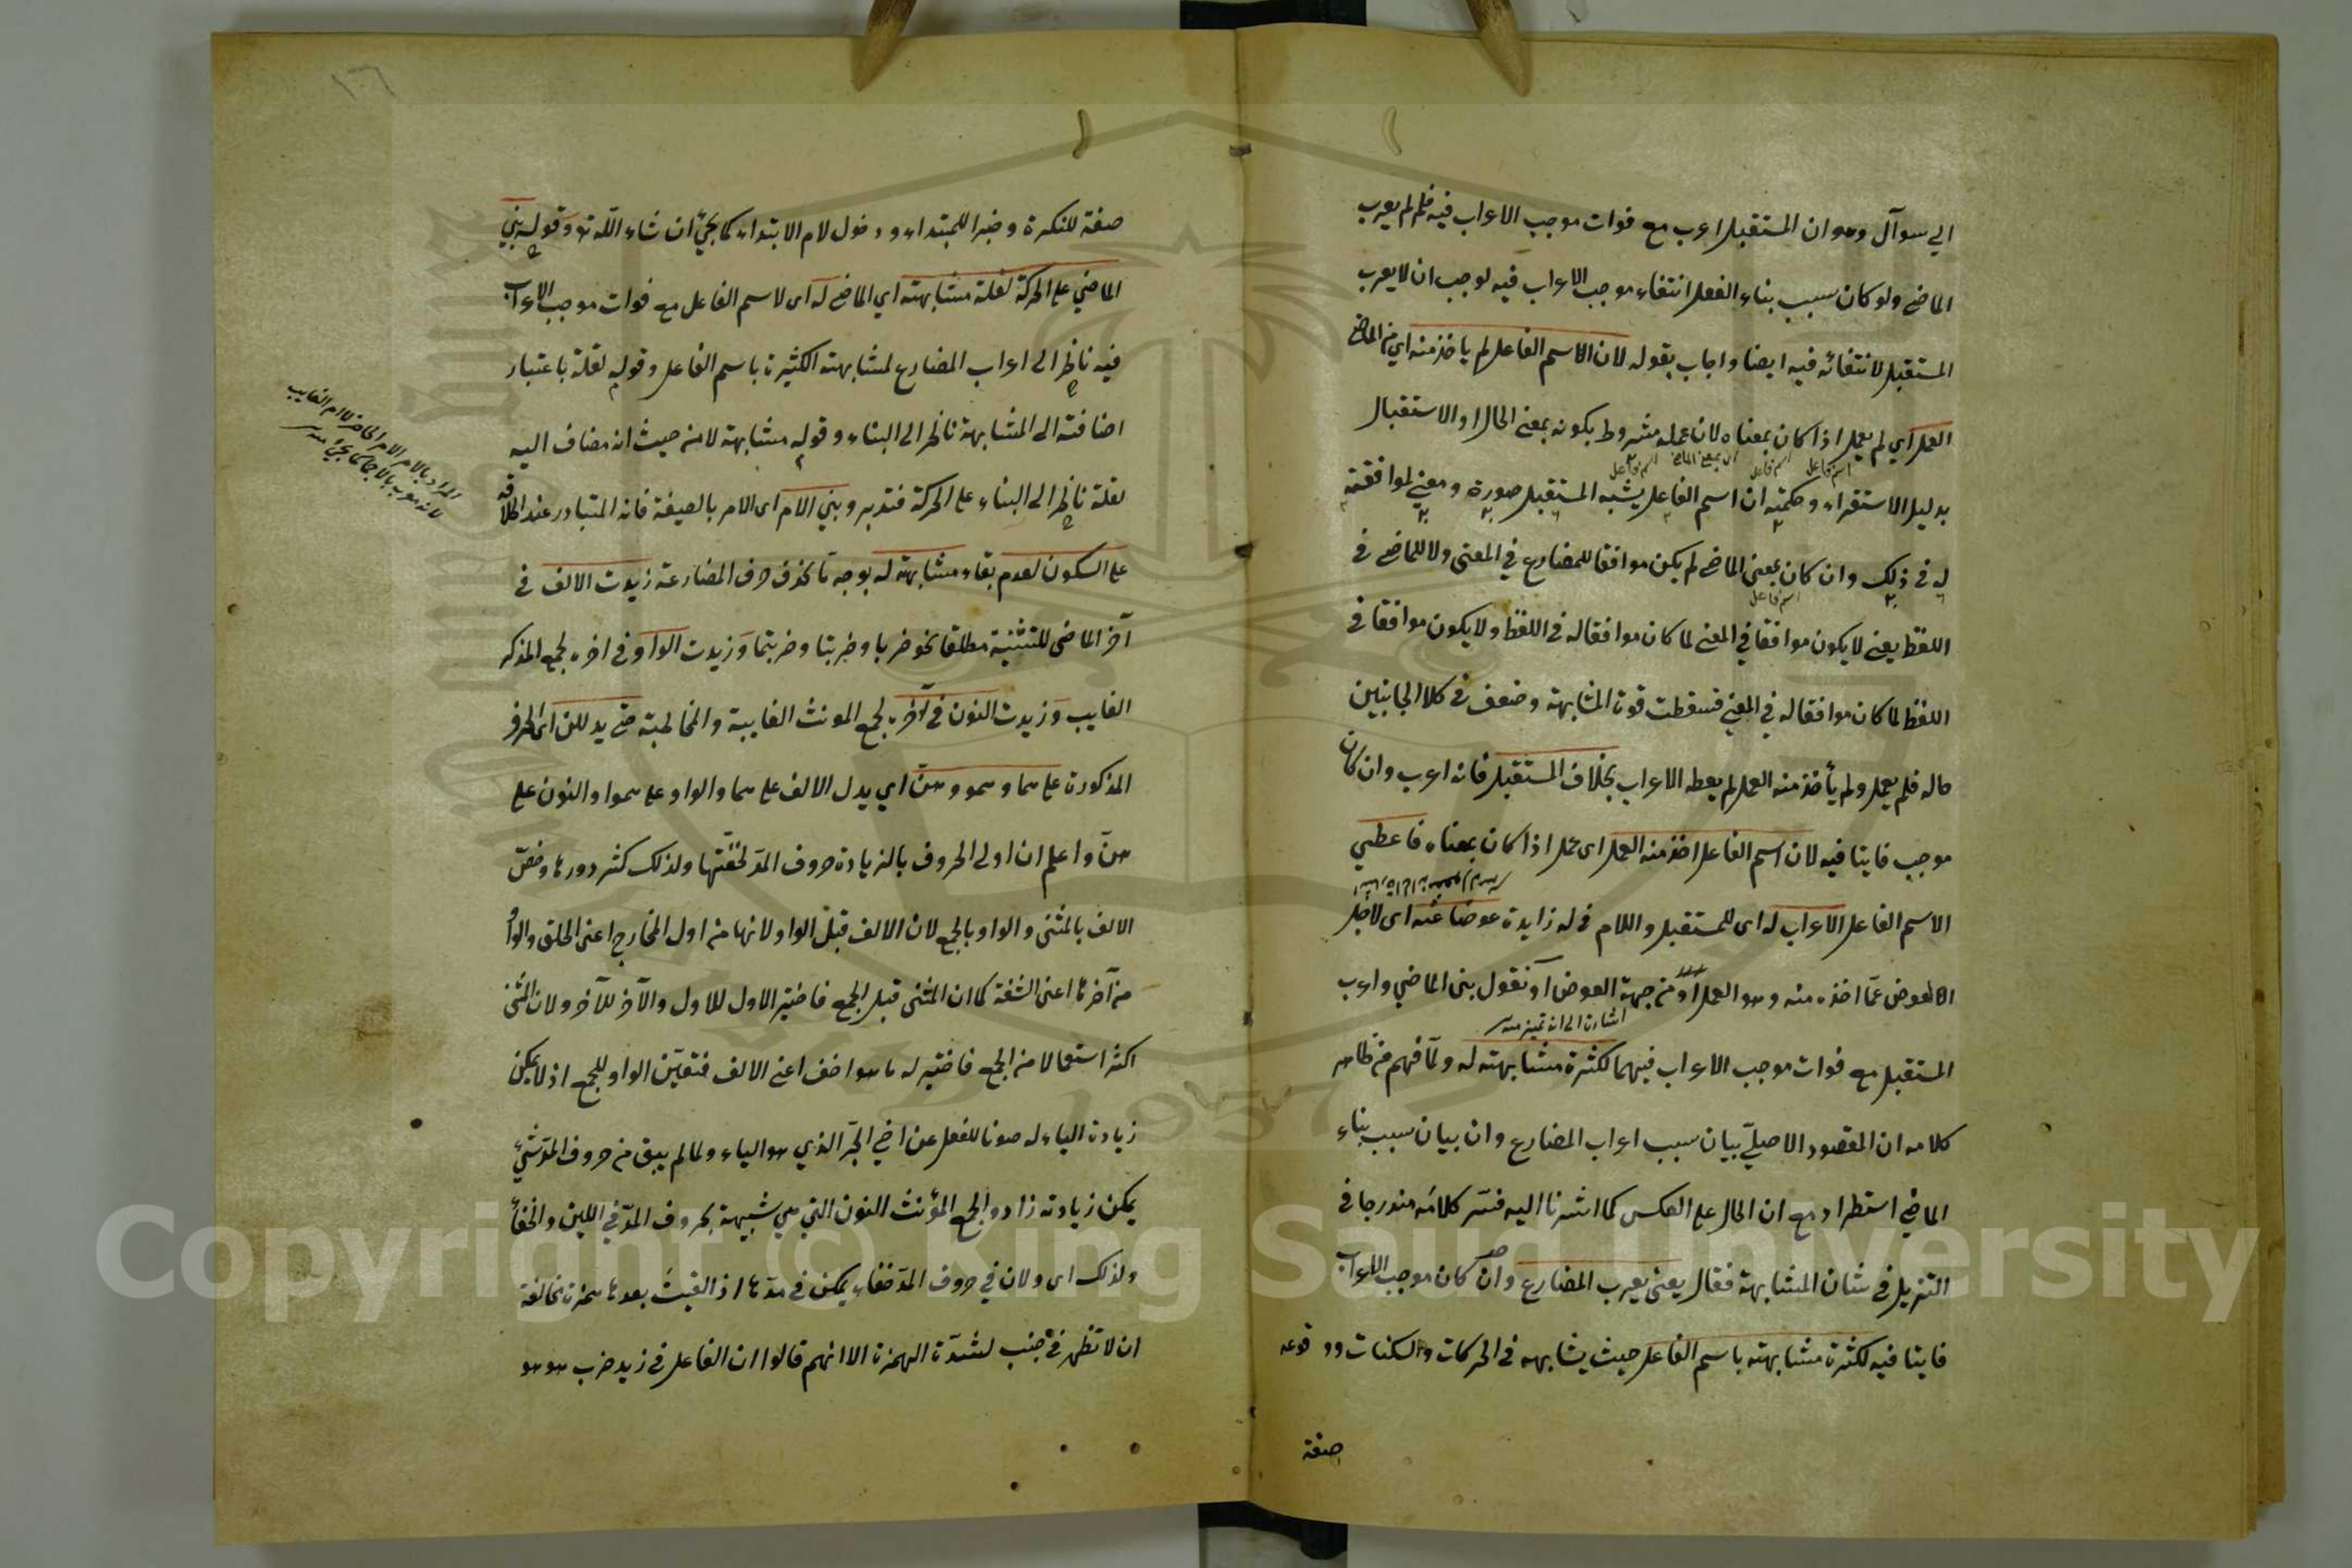 الي سوآل وهو ان المستقبل اعرب مع فوات موجب الاعراب فيه فلم لم يعرب
الماضي ولو كان سبب بناء الفعل انتفاء موجب الاعراب فيه لوجب ان لا يعرب
المستقبل لانتفائه فيه ايضا واجاب بقوله لان الاسم الفاعل لم ياخذ منه اي من الماضي
العمل اي لم يعمل اذا كان بمعناه لان عمله مشروط بكونه بمعنى الحال او الاستقبال
بدليل الاستقراء وحكمته ان اسم الفاعل يشبه المستقبل صورة ومعنى لموافقته
له في ذلك وان كان بمعنى الماضي لم يكن موافقا للمضارع في المعنى ولا للماضي في
اللفظ يعني لا يكون موافقا في المعنى لما كان موافقا له في اللفظ ولا يكون موافقا في
اللفظ لما كان موافقا له في المعنى فسقطت قوة المشابهة وضعف في كلا الجانبين
حاله فلم يعمل ولم يأخذ منه العمل لم يعطه الاعراب بخلاف المستقبل فانه اعرب وان كان
موجب فايتا فيه لان اسم الفاعل اخذ منه العمل اى عمل اذا كان بمعناه فاعطي
الاسم الفاعل الاعراب له اى للمستقبل واللام في له زايدة عوضا عنه اى لاجل
العوض عمّا اخذه منه وهو العمل او من جهة العوض او نقول بنى الماضي واعرب
اشارة الى انه تميز منه
المستقبل مع فوات موجب الاعراب فيهما لكثرة مشابهته له ولمّا فهم من ظاهر
كلامه ان المقصود الاصليّ بيان سبب اعراب المضارع وان بيان سبب بناء
الماضي استطراد مع ان الحال على العكس كما اشرنا اليه فسّر كلامه مندرجا في
التنزيل في شان المشابهة فقال يعني يعرب المضارع وان كان موجب الاعراب
فايتا فيه لكثرة مشابهته باسم الفاعل حيث يشابهه في الحركات والسكنات ووقوعه
صفة
١٦
صفة للنكرة وخبرا للمبتداء ودخول لام الابتداء كما يجئ ان شاء اللّه تع وقوله بني
الماضي على الحركة لقلة مشابهته اي الماضي له اى لاسم الفاعل مع فوات موجب الاعراب
فيه ناظر الى اعراب المضارع لمشابهته الكثيرة باسم الفاعل وقوله لقلة باعتبار
اضافته الى المشابهة ناظر الى البناء وقوله مشابهة لا من حيث انه مضاف اليه
لقلة ناظر الى البناء على الحركة فتدبر وبني الامر اى الامر بالصيغة فانه المتبادر عند اطلاقه
على السكون لعدم بقاء مشابهته له بوجه ما بحذف حرف المضارعة زيدت الالف في
آخر الماضى للتثنية مطلقا نحو ضربا وضربتا وضربتما وزيدت الواو في اخره لجمع المذكر
الغايب وزيدت النون في آخره لجمع المونث الغايبة والمخاطبة حتى يدللن اى الحروف
المذكورة على هما وهمو وهنّ اي يدل الالف على هما والواو على هموا والنون على
هنّ واعلم ان اولى الحروف بالزيادة حروف المدّ لخفّتها ولذلك كثر دورها وخصّ
الالف بالمثنى والواو بالجمع لان الالف قبل الواو لانها من اول المخارج اعنى الحلق والواو
من آخرها اعنى الشفة كما ان المثنى قبل الجمع فاختير الاول للاول والآخر للآخر ولان المثنى
اكثر استعمالا من الجمع فاختير له ما هو اخف اعنى الالف فتعيّن الواو للجمع اذ لا يمكن
زيادة الياء له صونا للفعل عن اخي الجرّ الذي هو الياء ولما لم يبق من حروف المدّ شئ
يمكن زيادته زادوا لجمع المؤنث النون التي هي شبيهة بحروف المدّ في اللين والخفاء
ولذلك اى ولان في حروف المدّ خفاء يمكن في مدّها اذ القيت بعدها همزة مخالفة
ان لا تظهر في جنب لشدّة الهمزة الا انهم قالوا ان الفاعل في زيد ضرب هو هو